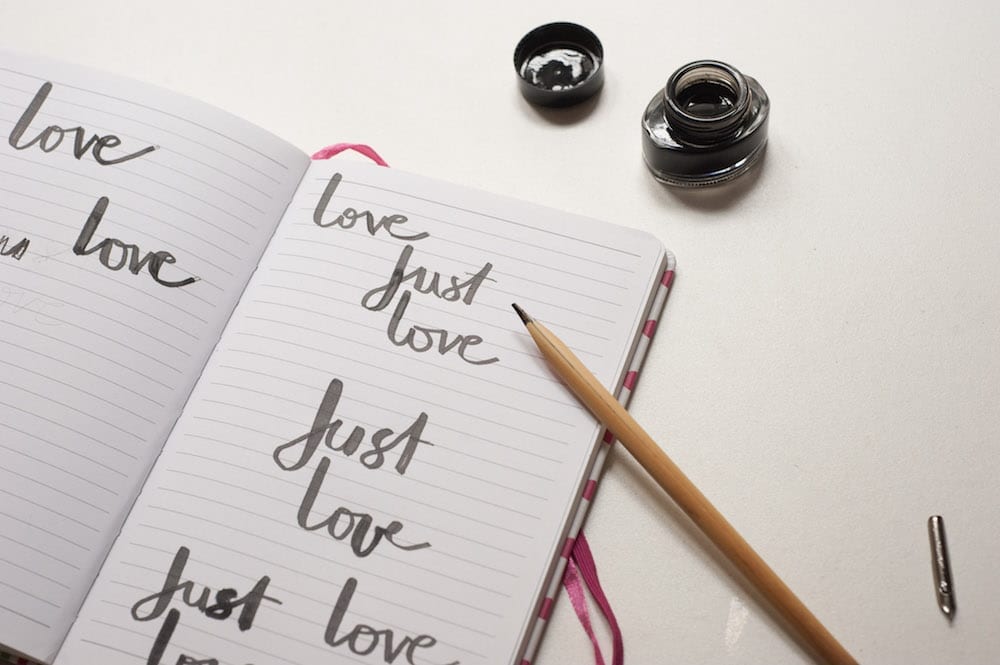 love
love
love
Just
love
Just
love
Just love